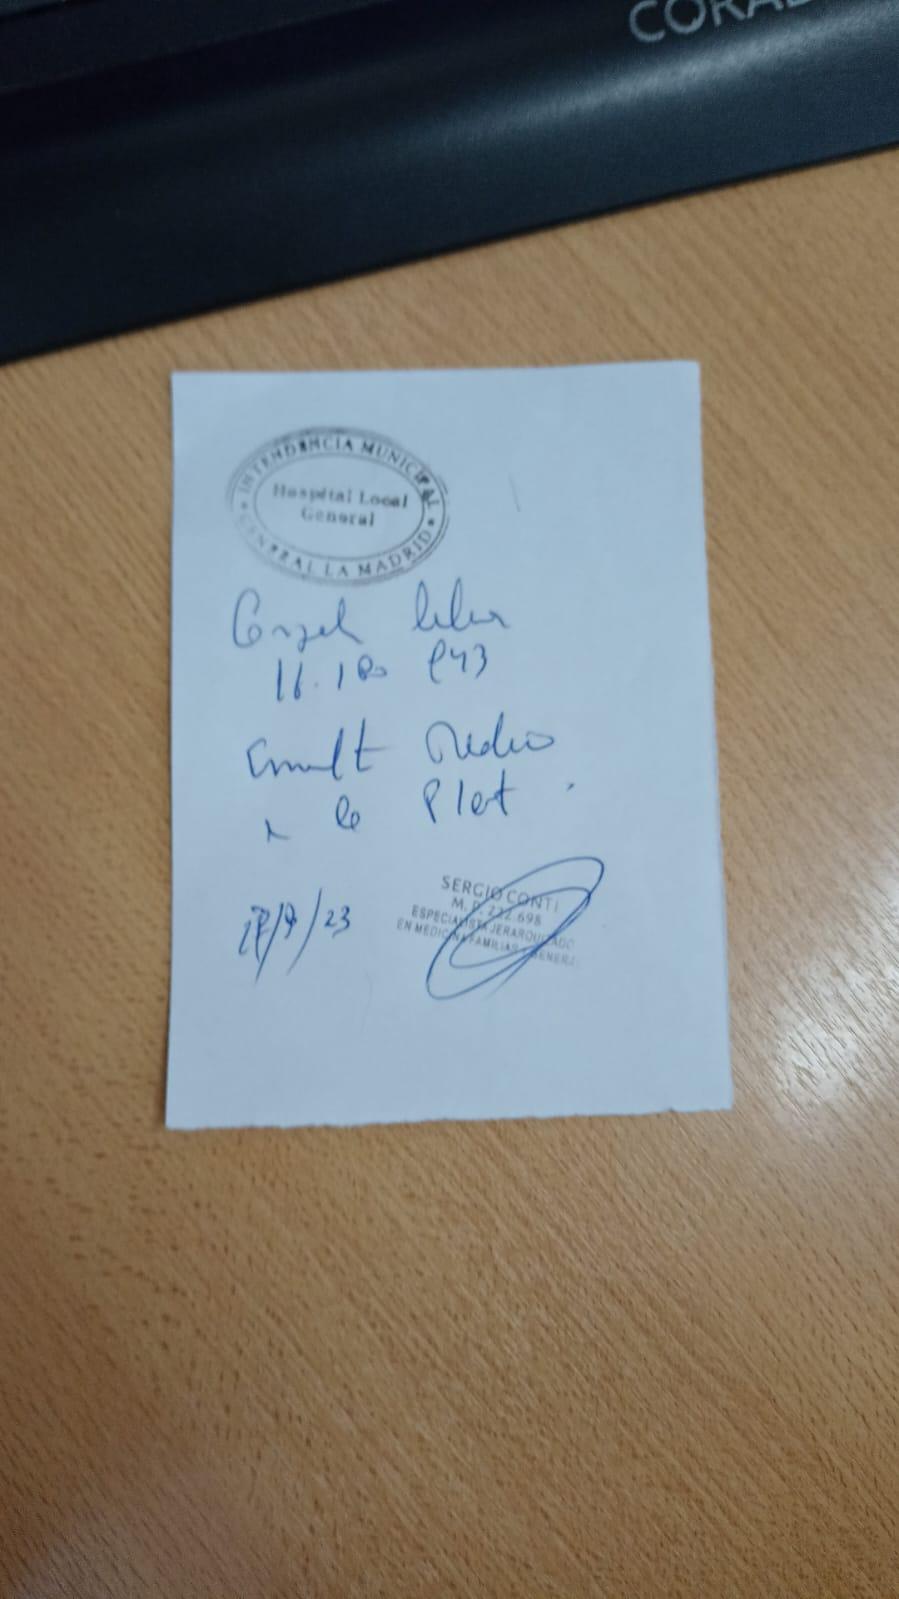 CORA
INTENDENCIA MUNICIPAL
Hospital Local
General
GENERAL LA MADRID
11.180 843
Consult Medico
a la Plat
/9/23
SERGIO CONTI
M. P. 232.698
ESPECIALISTA JERARQUIZADO
EN MEDICINA FAMILIAR Y GENERAL